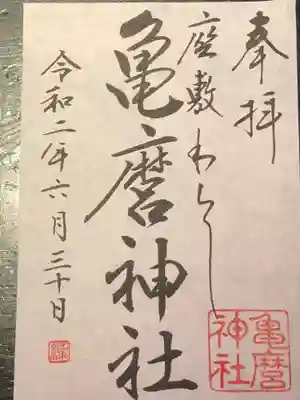 奉拝
座敷わらし
亀麿神社
令和二年六月三十日
亀麿
神社